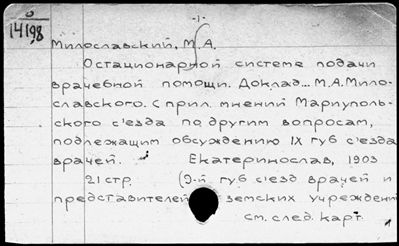 0
14198
-1-
Милославский, М.А.
Остационарной системе подачи
врачебной помощи. Доклад... М.А.Мило-
славского. С прил. мнений Мариуполь-
ского с'езда по другим вопросам,
подлежащим обсуждению IX губ с'езда
врачей. Екатеринослав, 1903
21 стр. (9-й губ с'езд врачей и
представителей земских учреждений
см. след. карт.